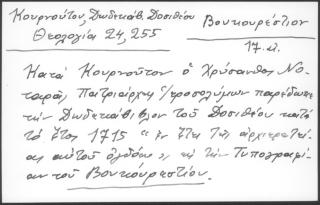 Κουρνούτου, Δωδεκάβ. Δοσιθέου
Βουκουρέστιον
Θεολογία 24, 255
17. αἰ.
Κατὰ Κουρνοῦτον ὁ Χρύσανθος Νο-
ταρᾶς Πατριάρχης Ἱεροσολύμων παρέδωκε
τὴν Δωδεκάβιβλον τοῦ Δοσιθέου κατὰ
τὸ ἔτος 1715 «ἐν ἔτει τῆς ἀρχιερατεί-
ας αὐτοῦ ὀγδόῳ» εἰς τὴν Τυπογραφί-
αν τοῦ Βουκουρεστίου.